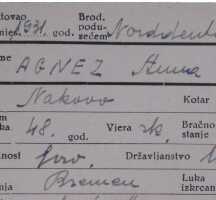 tovao Brod.
mjes. 1931. god. podu-
zećem Norddeutsc
me AGNEZ Anna
Nakovo Kotar
ka 48. god. Vjera rk. Bračno
stanje
nost Državljanstvo
nja Bremen Luka
izkrcan